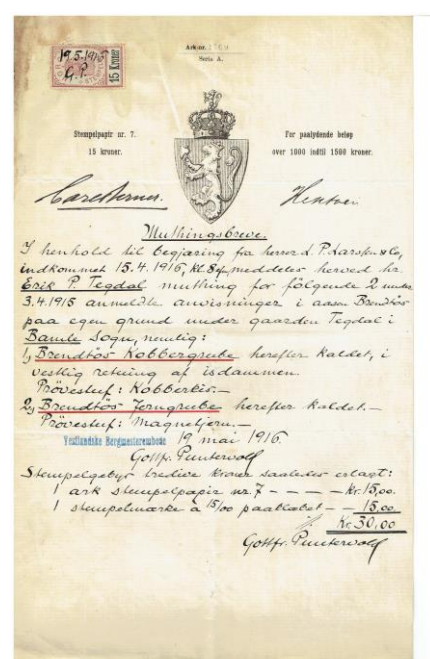 19.5-1916
G.P.
15 Kroner
Ark nr.
Serie A.
Stempelpapir nr. 7.
15 kroner.
For paalydende beløp
over 1000 indtil 1500 kroner.
Muthingsbreve.
I henhold til begjæring fra herrer L. P. Larsen & Co,
indkommet 15.4.1916, kl. meddeles herved hr.
Erik P. Tegdal muthing for følgende 2 under
3.4.1915 anmeldte anvisninger i aasen Brendtös
paa egen grund under gaarden Tegdal i
Bamle Sogn, nemlig:
1, Brendtös Kobbergrube herefter kaldet, i
vestlig retning af isdammen.
Prövestuf: Kobberkis.—
2, Brendtös Jerngrube herefter kaldet.—
Prövestuf: Magnetjern.—
Vestlandske Bergmesterembede 19 mai 1916.
Gottfr. Puntervold
Stempelgebyr tredive kroner saaledes erlagt:
1 ark stempelpapir nr. 7 – – – – Kr. 15,00.
1 stempelmærke a 15/00 paaklæbet – – 15.00
Kr. 30,00
Gottfr. Puntervold